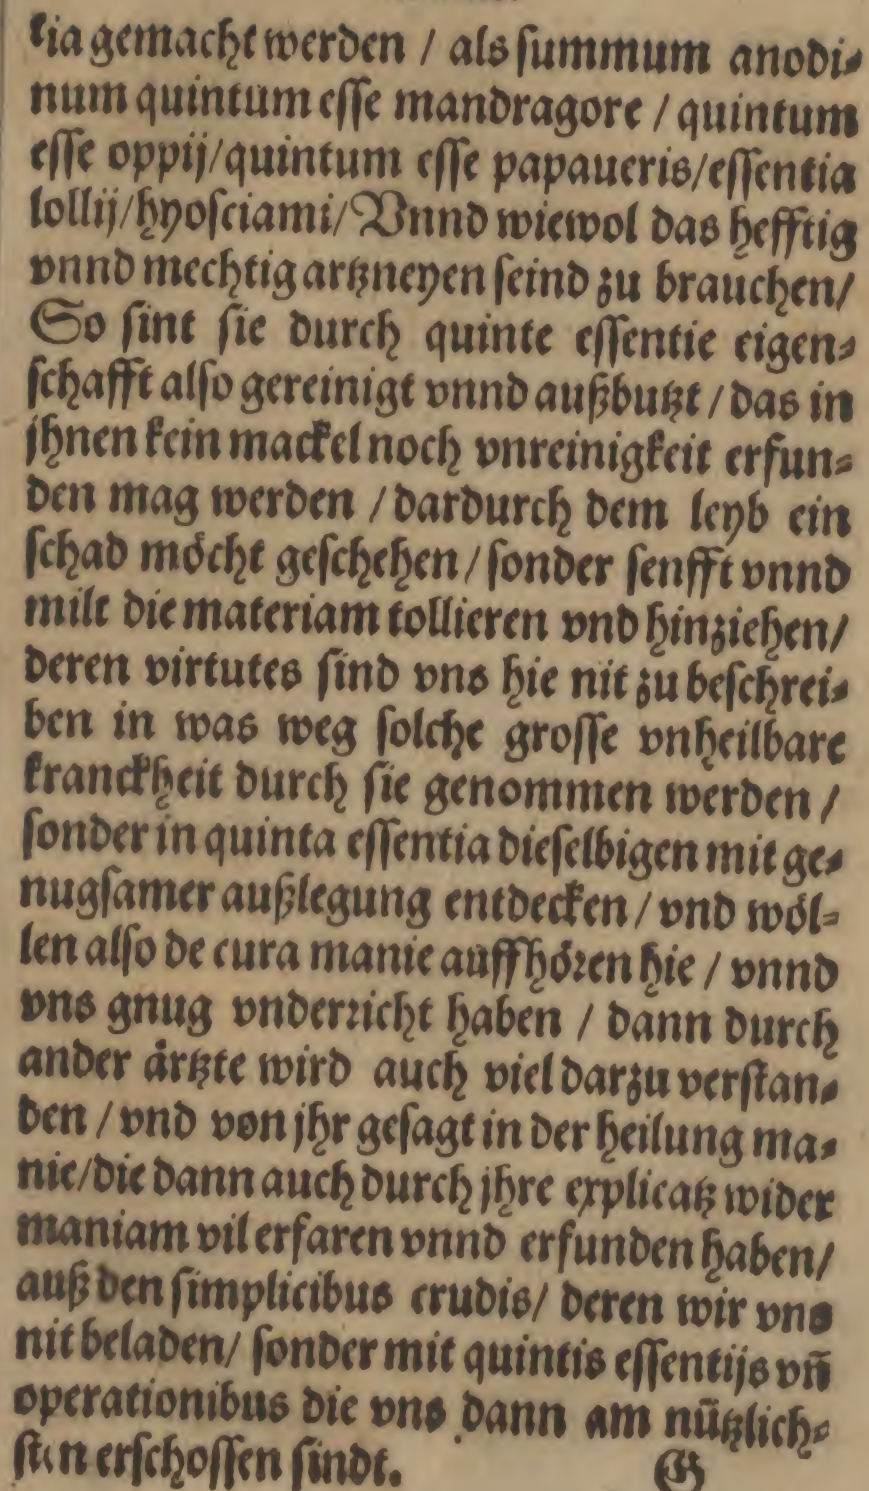 tia gemacht werden / als summum anodi⸗
num quintum esse mandragore / quintum
esse oppij/quintum esse papaueris/essentia
lollij/hyosciami/Vnnd wiewol das hefftig
vnnd mechtig artzneyen seind zu brauchen/
So sint sie durch quinte essentie eigen⸗
schafft also gereinigt vnnd außbutzt / das in
jhnen kein mackel noch vnreinigkeit erfun⸗
den mag werden / dardurch dem leyb ein
schad möcht geschehen / sonder senfft vnnd
milt die materiam tollieren vnd hinziehen/
deren virtutes sind vns hie nit zu beschrei⸗
ben in was weg solche grosse vnheilbare
kranckheit durch sie genommen werden /
sonder in quinta essentia dieselbigen mit ge⸗
nugsamer außlegung entdecken / vnd wöl⸗
len also de cura manie auffhören hie / vnnd
vns gnug vnderricht haben / dann durch
ander ärtzte wird auch viel darzu verstan⸗
den / vnd von jhr gesagt in der heilung ma⸗
nie/die dann auch durch jhre explicatz wider
maniam vil erfaren vnnd erfunden haben/
auß den simplicibus crudis/ deren wir vns
nit beladen/ sonder mit quintis essentijs vñ
operationibus die vns dann am nützlich⸗
sten erschossen sindt. G